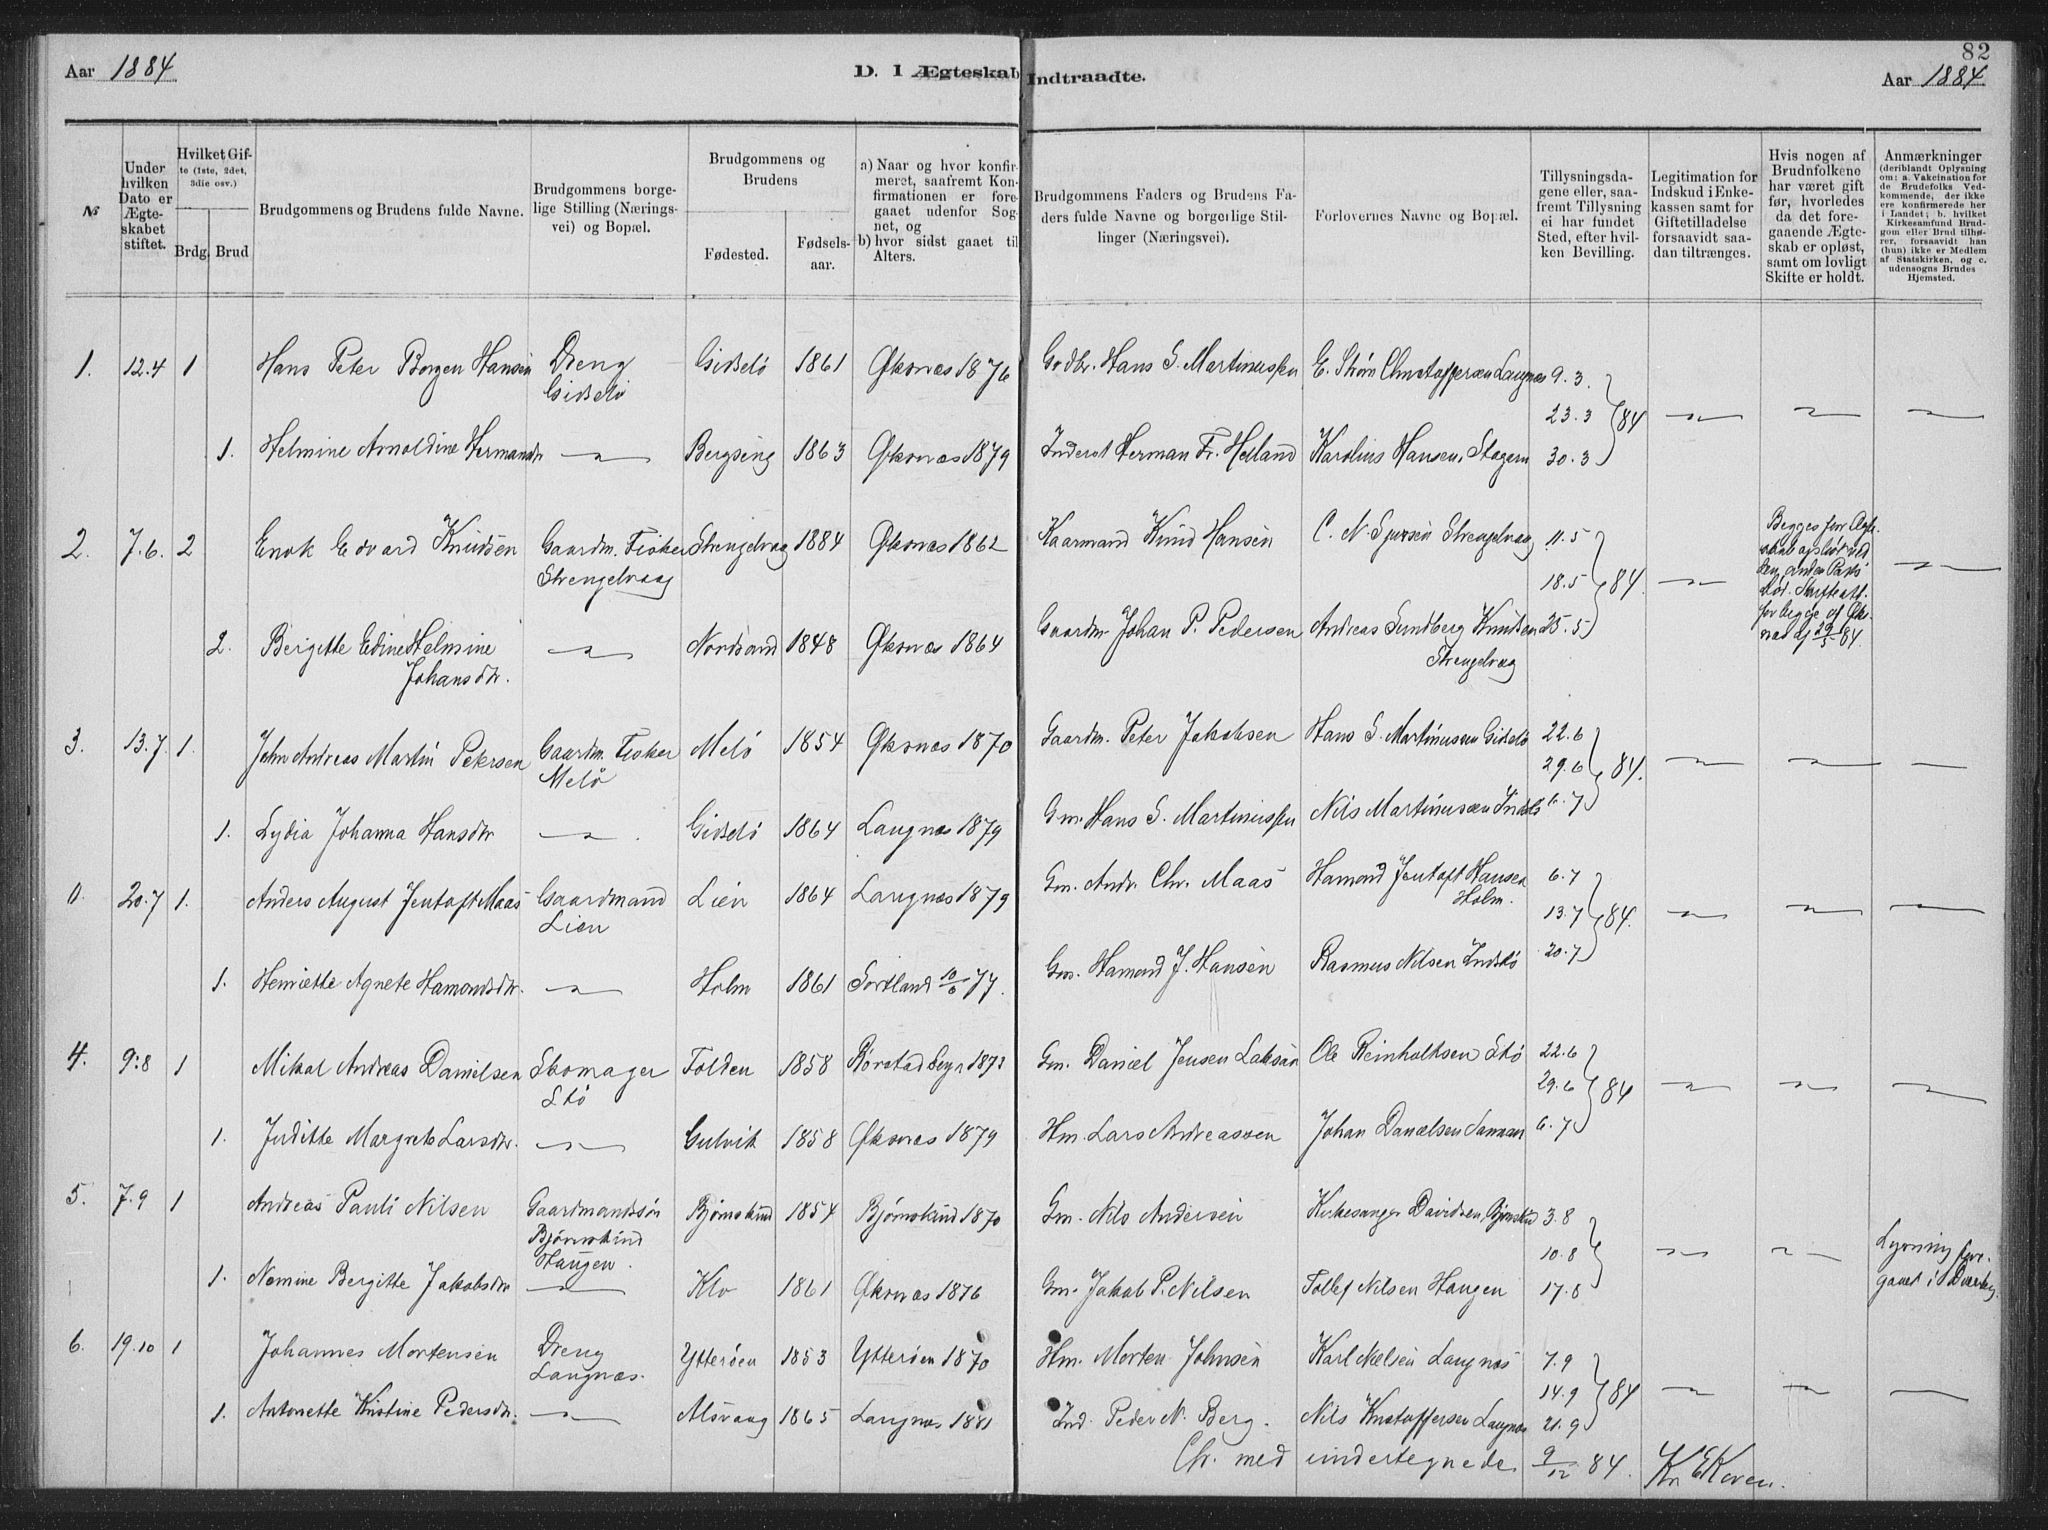 82
Aar 1884
D. I Ægteskab Indtraadte.
Aar 1884
№
Under hvilken Dato er Ægteskabet stiftet.
Hvilket Gifte (1ste, 2det, 3die osv.)
Brdg.
Brud
Brudgommens og Brudens fulde Navne.
Brudgommens borgelige Stilling (Næringsvei) og Bopæl.
Brudgommens og Brudens
Fødested.
Fødselsaar.
a) Naar og hvor konfirmeret, saafremt Konfirmationen er foregaaet udenfor Sognet, og
b) hvor sidst gaaet til Alters.
Brudgommens Faders og Brudens Faders fulde Navne og borgerlige Stillinger (Næringsvei).
Forlovernes Navne og Bopæl.
Tillysningsdagene eller, saafremt Tillysning ei har fundet Sted, efter hvilken Bevilling.
Legitimation for Indskud i Enkekassen samt for Giftetilladelse forsaavidt saadan tiltrænges.
Hvis nogen af Brudnfolkene har været gift før, hvorledes da det foregaaende Ægteskab er opløst, samt om lovligt Skifte er holdt.
Anmærkninger (deriblandt Oplysning om: a. Vakcination for de Brudefolks Vedkommende, der ikke ere konfirmerede her i Landet; b. hvilket Kirkesamfund Brudgom eller Brud tilhører, forsaavidt han (hun) ikke er Medlem af Statskirken, og c. udensogns Brudes Hjemsted.
1. 12.4 1 Hans Peter Borgen Hansen Dreng Gidselö Gidselö 1861 Øksnæs 1876 Gvdbr. Hans S. Martinussen E. Strøm Christoffersen Langnæs 9.3
23.3 84
1. Helmine Arnoldine Hermandtr Bergseng 1863 Øksnæs 1879 Inderst Herman Fr. Helland Karolius Hansen, 30.3
2. 7.6. 2 Enok Edvard Knudsen Gaardm. Fisker Strengelvaag Strengelvag 1884 Øksnæs 1862 Kaarmand Knud Hansen C. N. Sjursen Strengelvag 11.5
18.5 84.
2. Bergitte Edine Helmine Johansdtr. Nordsand 1848 Øksnæs 1864 Gaardm. Johan P. Pedersen Andreas Sundberg Knudsen Strengelvag 25.5
Begges før Ægteskab opløst ved den anden Parts Død. Skifteatt. for begge af Øksnæs af 29/5 84.
3. 13.7 1. John Andreas Martin Petersen Gaardm. Fisker Melö Melö 1854 Øksnæs 1870 Gaardm. Peter Jakobsen Hans S. Martinussen Gidselö 22.6
29.6 84.
1. Lydia Johanna Hansdtr Gidselö 1864 Langnæs 1879 Gm. Hans S. Martinussen Nils Martinussen Indslö 6.7
0. 20.7 1. Anders August Jentoft Maas Gaardmand Lien Lien 1864 Langnæs 1879 Gm. Andr. Chr. Maas Hamond Jentoft Hansen Holm. 6.7
13.7 84.
1. Henriette Agnete Hamondsdtr. Holm 1861 Sortland 10/6 77. Gm. Hamond J. Hansen Rasmus Nilsen Indslö 20.7
4. 9.8 1 Mikal Andreas Danielsen Skomager Stö Folden 1858 Rørstad 1873 Gm. Daniel Jensen Ole Reinholtsen Stö 22.6
29.6 84
1. Juditte Margrete Larsdtr. Gulvik 1858 Øksnæs 1879 Hm. Lars Andreassen Johan Danielsen 6.7
5. 7.9 1 Andreas Pauli Nilsen Gaardmandssøn Bjørnskind Haugen. Bjørnskind 1854 Bjørnskind 1870 Gm. Nils Andersen Kirkesanger Davidsen, Bjørnskind 3.8
10.8
1. Nomine Bergitte Jakobsdtr Klo 1861 Øksnæs 1876 Gm. Jakob P. Nilsen Tollef Nilsen Haugen 17.8
Lysning foregaaet i Dverberg.
6. 19.10 1 Johannes Mortensen Dreng Langnæs. Ytterøen 1853 Ytterøen 1870 Hm. Morten Johnsen Karl Nielsen Langnæs 7.9
14.9 84
1. Antonette Kristine Pedersdtr. Alsvaag 1865 Langnæs 1881 Ind. Peder N. Berg. Nils Kristoffersen Langnæs 21.9
Chr. med undertegnede 9/12 84.